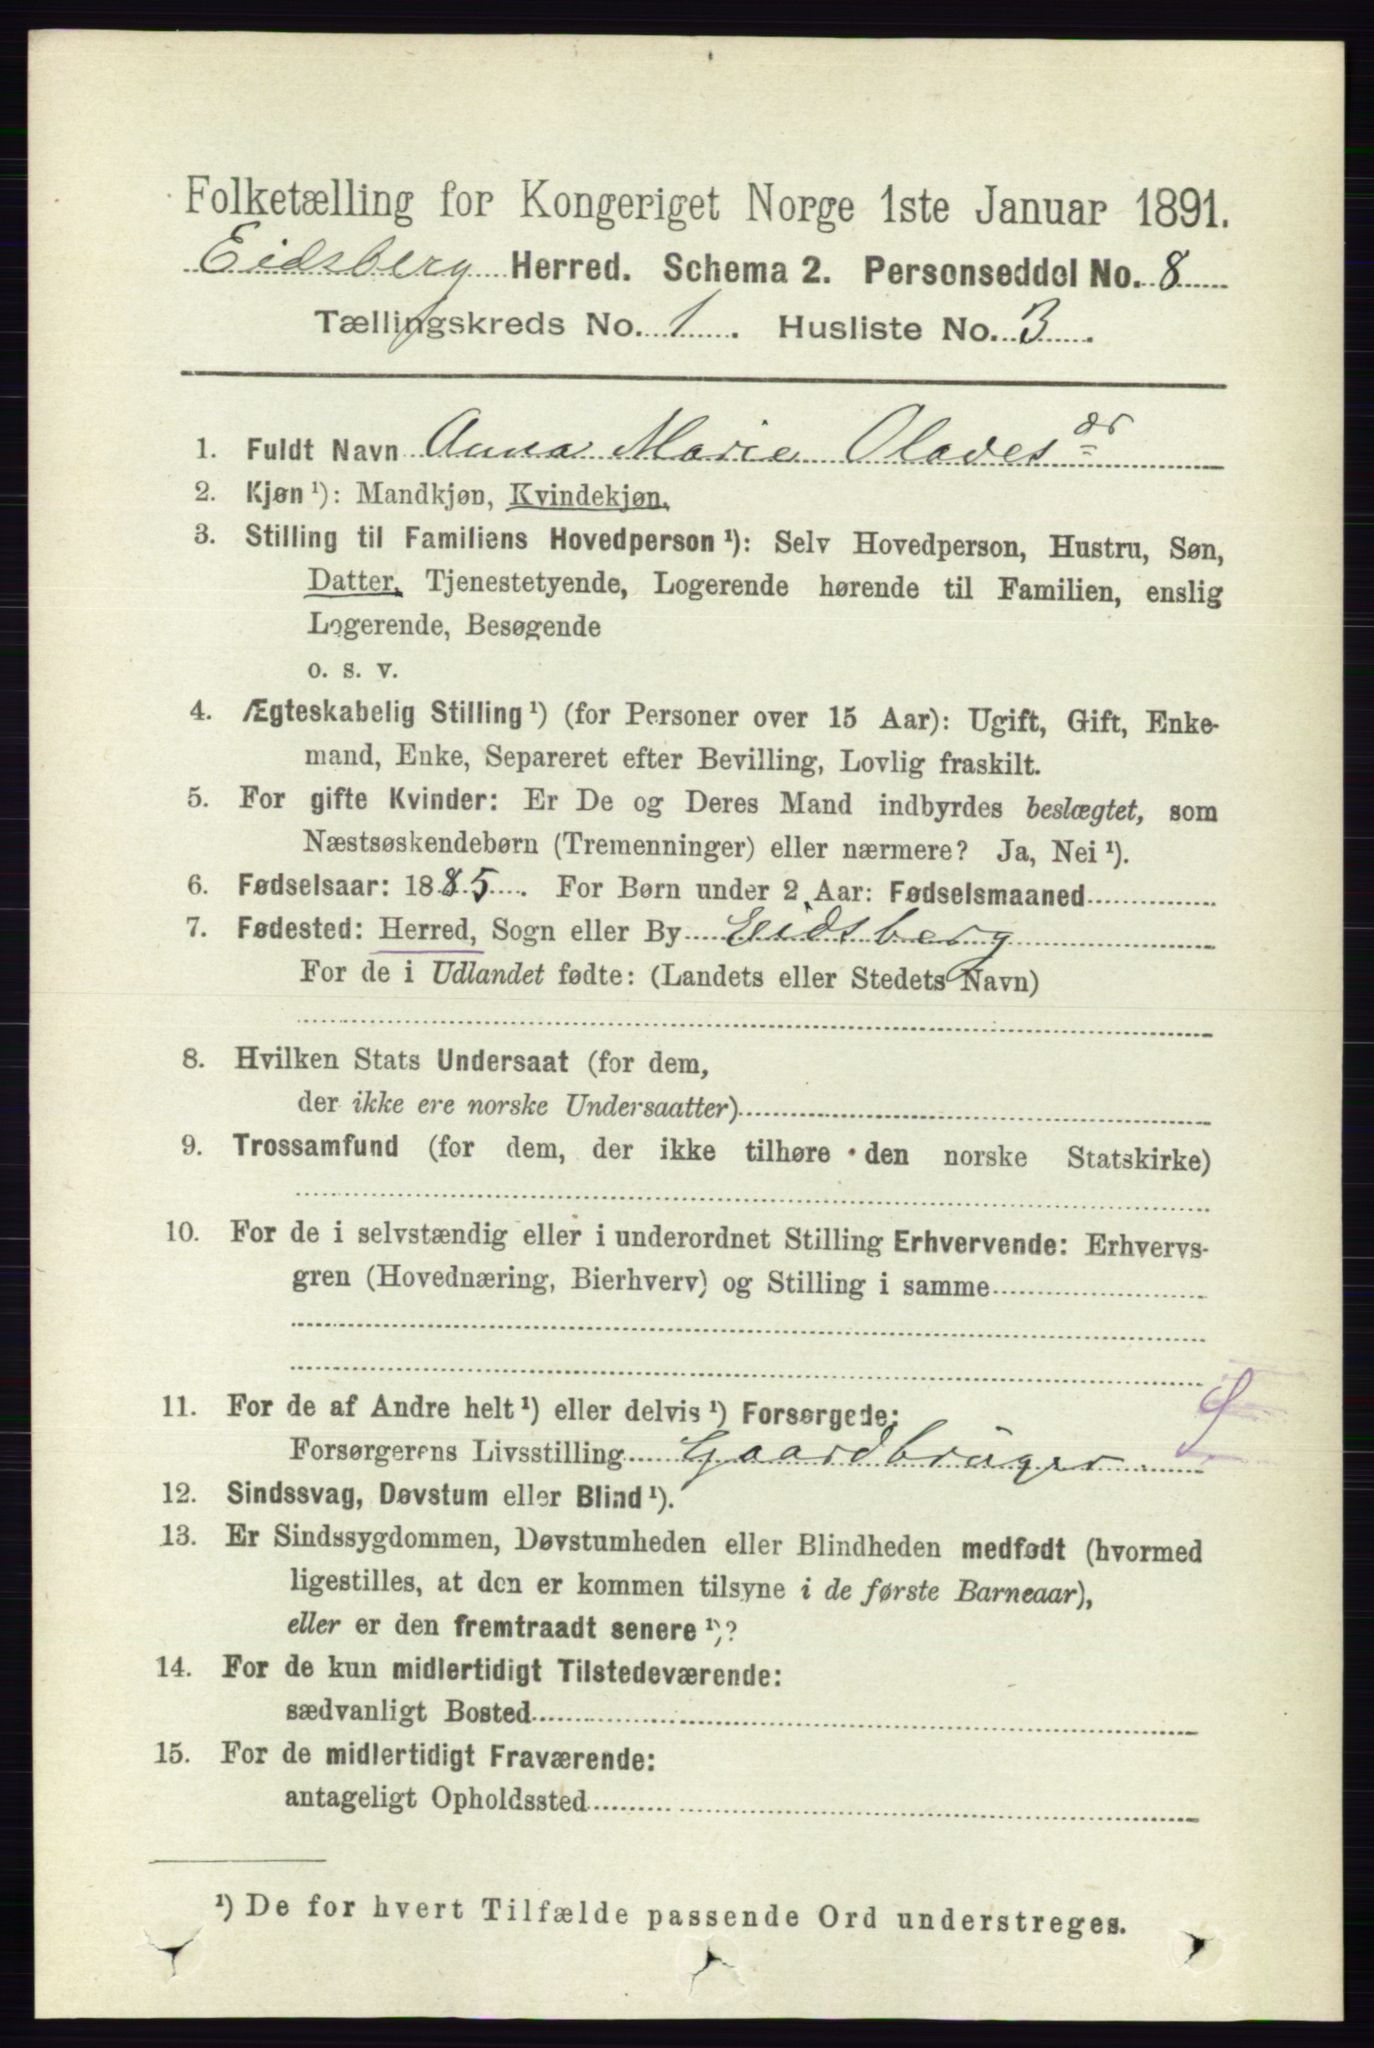 Folketælling for Kongeriget Norge 1ste Januar 1891.
Eidsberg Herred. Schema 2. Personseddel No. 8
Tællingskreds No. 1. Husliste No. 3.
1. Fuldt Navn Anna Marie Olavesdr
2. Kjøn ¹): Mandkjøn, Kvindekjøn.
3. Stilling til Familiens Hovedperson ¹): Selv Hovedperson, Hustru, Søn,
Datter, Tjenestetyende, Logerende hørende til Familien, enslig
Logerende, Besøgende
o. s. v.
4. Ægteskabelig Stilling ¹) (for Personer over 15 Aar): Ugift, Gift, Enke-
mand, Enke, Separeret efter Bevilling, Lovlig fraskilt.
5. For gifte Kvinder: Er De og Deres Mand indbyrdes beslægtet, som
Næstsøskendebørn (Tremenninger) eller nærmere? Ja, Nei ¹).
6. Fødselsaar: 1885. For Børn under 2 Aar: Fødselsmaaned
7. Fødested: Herred, Sogn eller By Eidsberg
For de i Udlandet fødte: (Landets eller Stedets Navn)
8. Hvilken Stats Undersaat (for dem,
der ikke ere norske Undersaatter)
9. Trossamfund (for dem, der ikke tilhøre den norske Statskirke)
10. For de i selvstændig eller i underordnet Stilling Erhvervende: Erhvervs-
gren (Hovednæring, Bierhverv) og Stilling i samme
11. For de af Andre helt ¹) eller delvis ¹) Forsørgede:
Forsørgerens Livsstilling Gaardbruger
12. Sindssvag, Døvstum eller Blind ¹).
13. Er Sindssygdommen, Døvstumheden eller Blindheden medfødt (hvormed
ligestilles, at den er kommen tilsyne i de første Barneaar),
eller er den fremtraadt senere ¹)?
14. For de kun midlertidigt Tilstedeværende:
sædvanligt Bosted
15. For de midlertidigt Fraværende:
antageligt Opholdssted
¹) De for hvert Tilfælde passende Ord understreges.